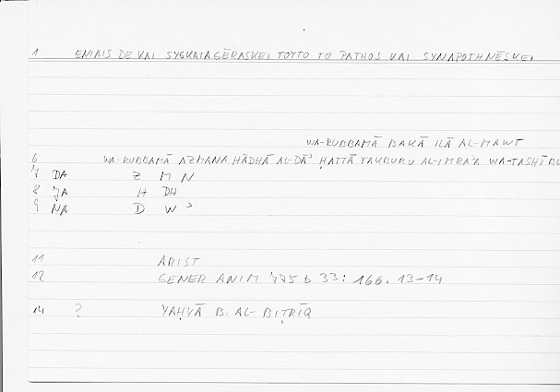 1 ENIAIS DE KAI SYGKATAGĒRASKEI TOYTO TO PATHOS KAI SYNAPOTHNĒSKEI
WA-RUBBAMĀ BAKĀ ILĀ AL-MAWT
6 WA-RUBBAMĀ AZMANA HĀDHĀ AL-DĀʾ ḤATTĀ TAKBURU AL-IMRAʾA WA-TASHĪBU
7 DA Z M N
8 YA H DH
9 NA D W ʾ
11 ARIST
12 GENER ANIM 775 b 33: 166. 13-14
14 ? YAḤYĀ B. AL-BIṬRĪQ